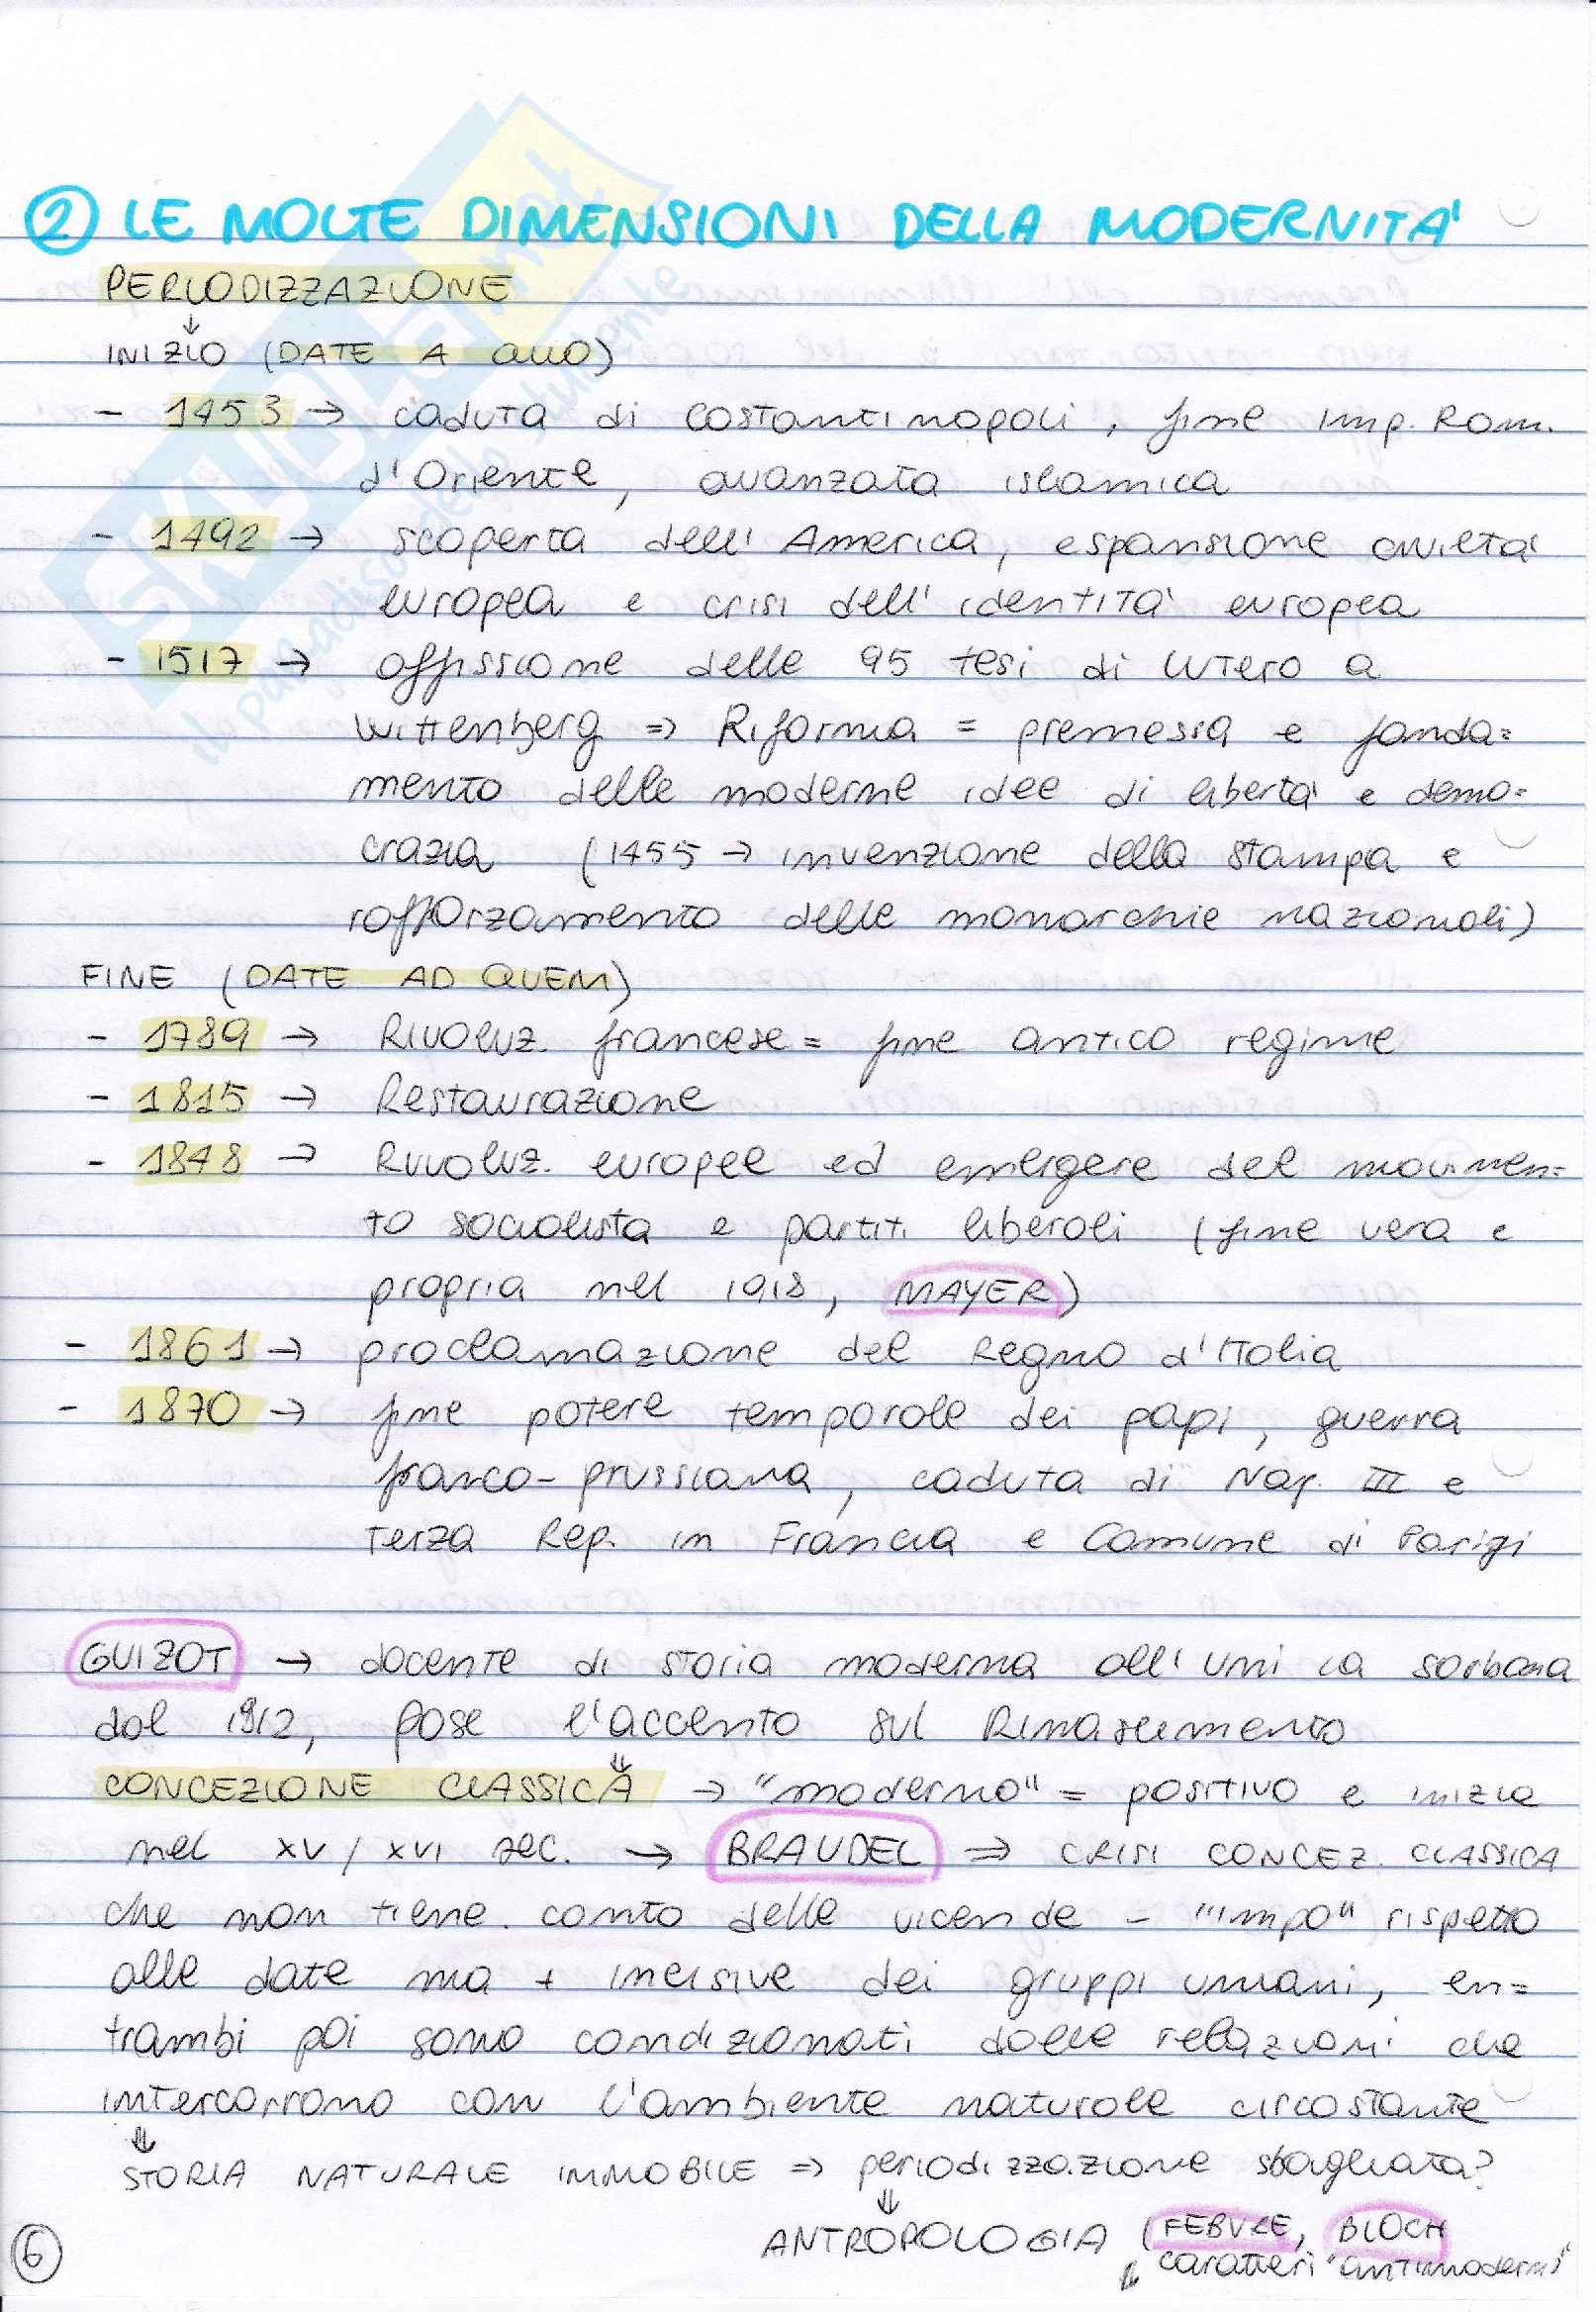 ② LE MOLTE DIMENSIONI DELLA MODERNITA'
PERIODIZZAZIONE
↓
INIZIO (DATE A QUO)
- 1453 → caduta di Costantinopoli, fine Imp. Rom.
d'Oriente, avanzata islamica
- 1492 → scoperta dell'America, espansione civiltà
europea e crisi dell'identità europea
- 1517 → affissione delle 95 tesi di Lutero a
Wittenberg ⇒ Riforma = premessa e fonda=
mento delle moderne idee di libertà e demo=
crazia (1455 → invenzione della stampa e
rafforzamento delle monarchie nazionali)
FINE (DATE AD QUEM)
- 1789 → Rivoluz. francese = fine antico regime
- 1815 → Restaurazione
- 1848 → Rivoluz. europee ed emergere del movimen=
to socialista e partiti liberali (fine vera e
propria nel 1918, MAYER)
- 1861 → proclamazione del Regno d'Italia
- 1870 → fine potere temporale dei papi, guerra
franco-prussiana, caduta di Nap. III e
Terza Rep. in Francia e Comune di Parigi
GUIZOT → docente di storia moderna all'uni la Sorbona
dal 1912, pose l'accento sul Rinascimento
⇓
CONCEZIONE CLASSICA → "moderno" = positivo e inizia
nel XV/XVI sec. → BRAUDEL ⇒ CRISI CONCEZ. CLASSICA
che non tiene conto delle vicende - "impo" rispetto
alle date ma + incisive dei gruppi umani, en=
trambi poi sono condizionati dalle relazioni che
intercorrono con l'ambiente naturale circostante
⇓
STORIA NATURALE IMMOBILE ⇒ periodizzazione sbagliata?
⇓
ANTROPOLOGIA (FEBVRE, BLOCH
⇓ caratteri "antimoderni"
6
SKUOLA.net
il paradiso dello studente